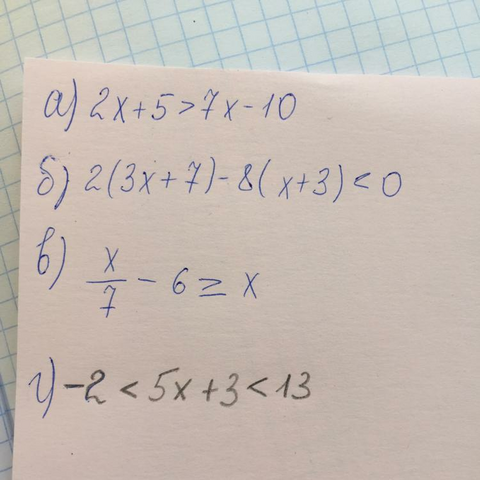 а) 2x+5>7x-10
б) 2(3x+7)-8(x+3)<0
в) x/7 - 6 ≥ x
г) -2<5x+3<13